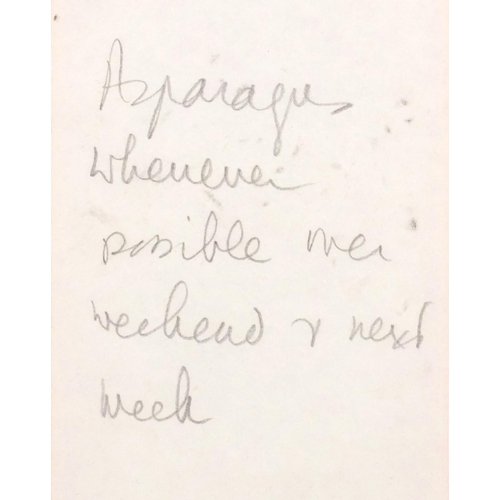 Asparagus
whenever
possible over
weekend & next
week